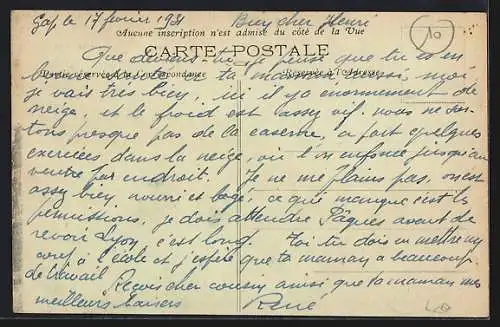 Gap, le 17 février 1931 Bien cher Henri
Aucune inscription n'est admise du côté de la Vue
CARTE POSTALE
Que deviens-tu, je pense que tu es en
bonne santé ta maman aussi, moi
Partie réservée à la Correspondance Réservée à l'Adresse
je vais très bien, ici il y a énormément de
neige, et le froid est assez vif. nous ne sor-
tons presque pas de la caserne, à part quelques
exercices dans la neige, où l'on enfonce jusqu'au
ventre par endroit. Je ne me plains pas, on est
assez bien nourri et logé, ce qui manque c'est la
permissions, je dois attendre Pâques avant de
revoir Lyon, c'est long. Toi tu dois en mettre un
coup à l'école et j'espère que ta maman a beaucoup
de travail. Reçois cher cousin ainsi que ta maman mes
meilleurs baisers René
10